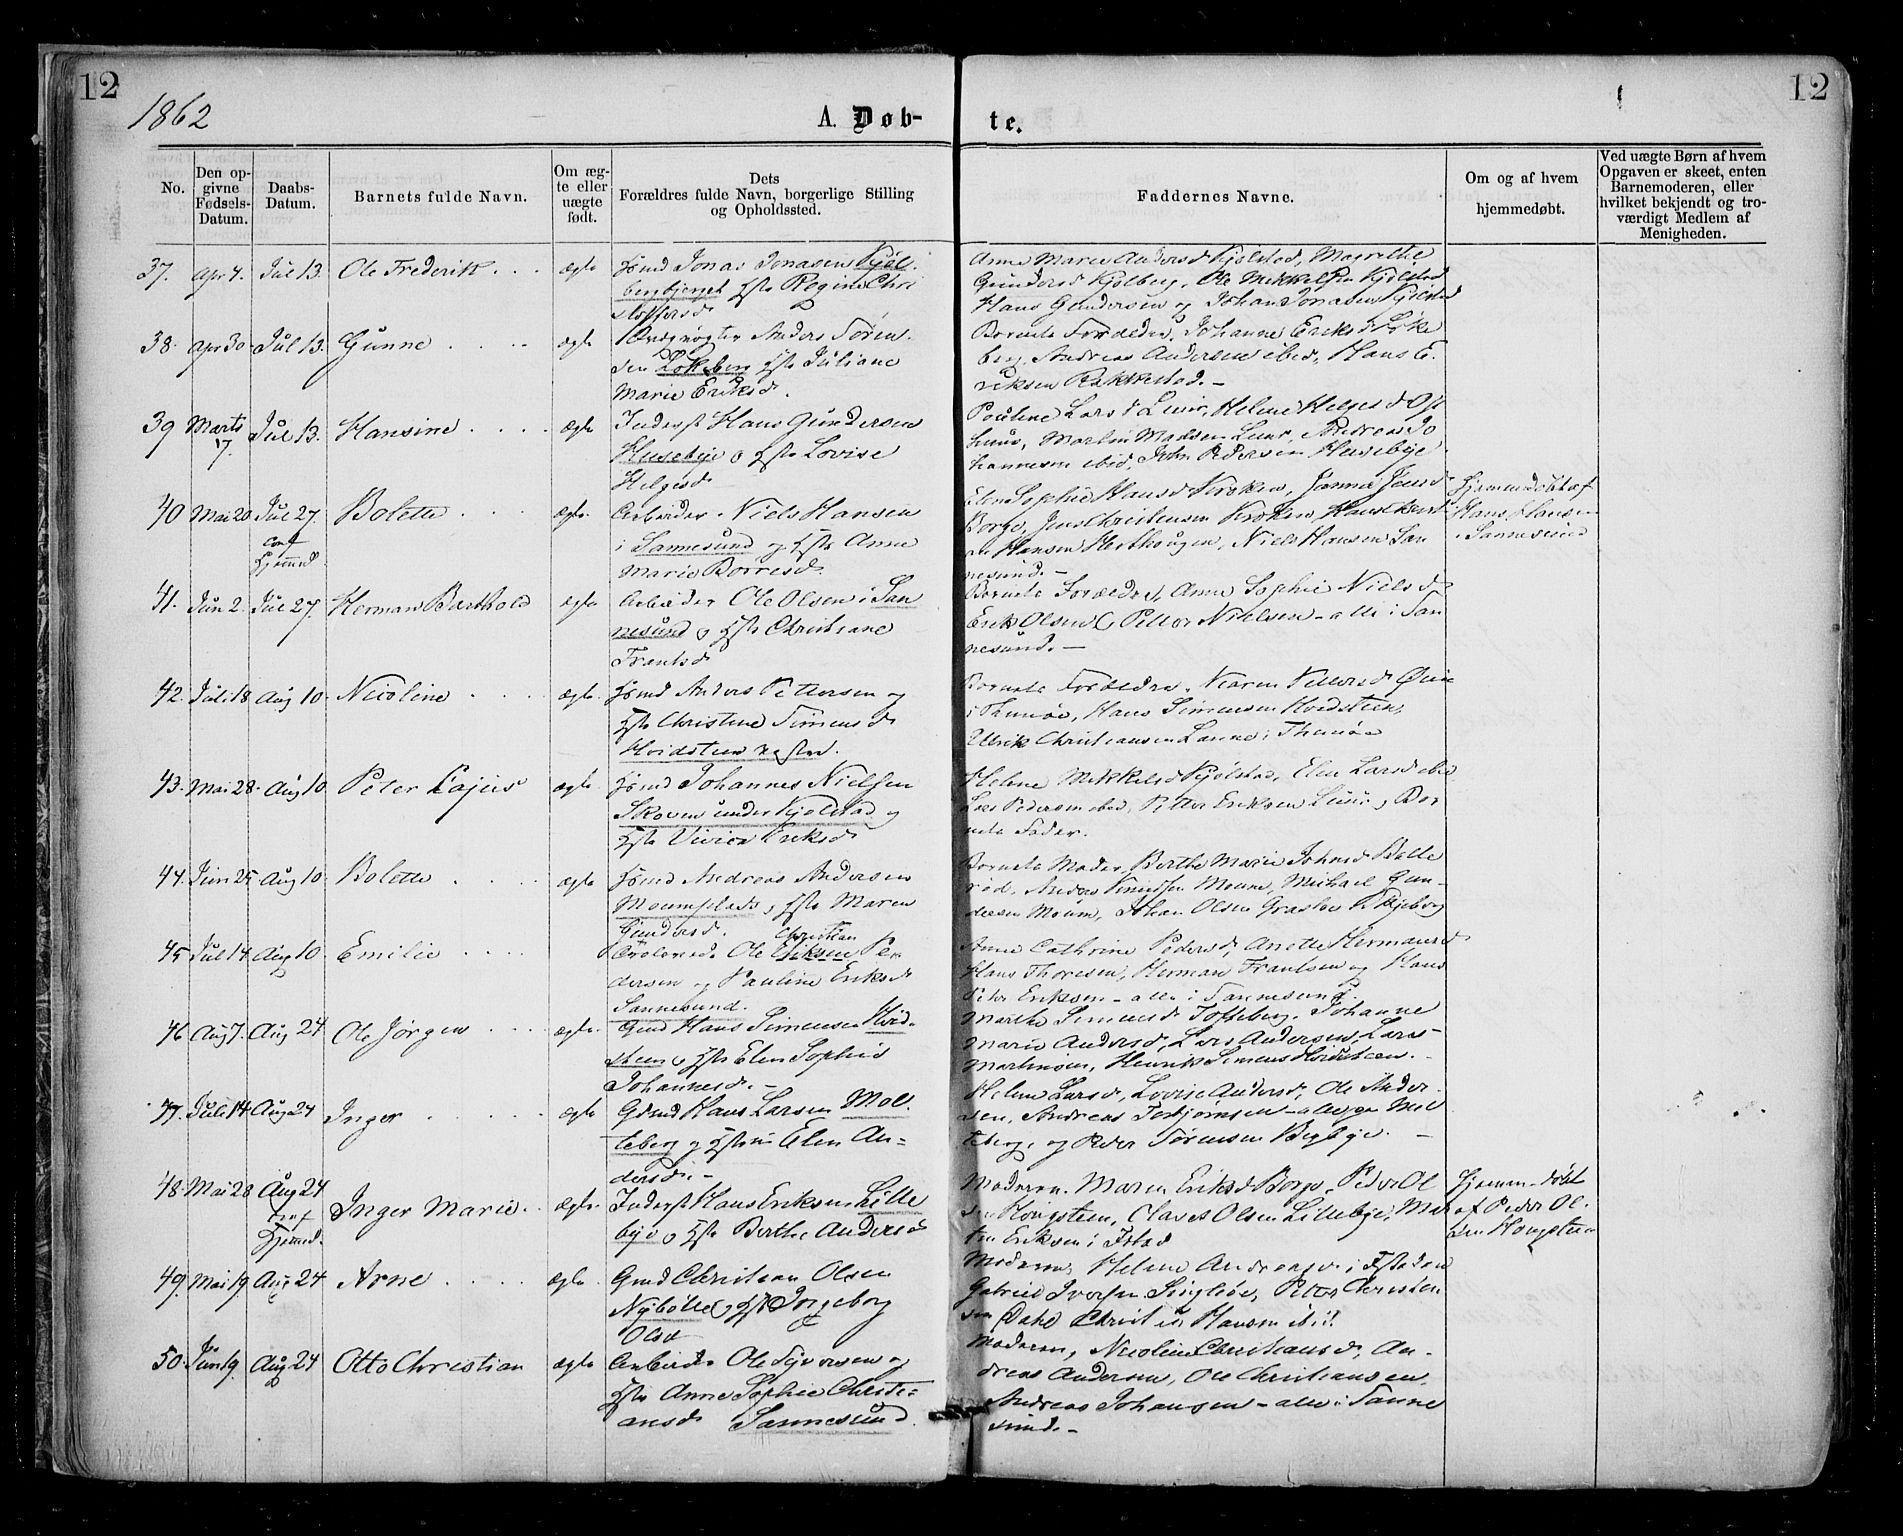 12
12
1862
A. Døb-
te.
No.
Den op-
givne
Fødsels-
Datum.
Daabs-
Datum.
Barnets fulde Navn.
Om æg-
te eller
uægte
født.
Dets
Forældres fulde Navn, borgerlige Stilling
og Opholdssted.
Faddernes Navne.
Om og af hvem
hjemmedøbt.
Ved uægte Børn af hvem
Opgaven er skeet, enten
Barnemoderen, eller
hvilket bekjendt og tro-
værdigt Medlem af
Menigheden.
37. Apr 4. Jul 13. Ole Frederik . . . ægte Hsmd Jonas Jonasen Kjøl-
bergbjerget Hst Regine Chri
stoffersd
Anne Marie Andersd Kjølstad, Magrethe
Gundersd Kjølberg, Ole Mikkelsen Kjølstad
Hans Gundersen og Johan Jonasen Kjølstad
38. Apr 30 Jul 13. Gunne . . . . ægte Anders Søren-
sen Lokkeberg Hst Juliane
Marie Eriksd.
Bornets Forældre, Johanne Eriksd Løke
berg, Andreas Andersen ibid, Hans E-
riksen Rakkestad. -
39 Marts 17. Jul 13. Hansine . . . . ægte Inderst Hans Gundersen
Husebye o Hst Lovise
Helgesd
Pauline Larsd Lunn, Helene Helgesd Øst
huus, Martin Madsen Lunn, Andreas Jo
hannesen ibid, John Pedersen Husebye
40 Mai 20 Jul 27. conf Hjemmd. Bolette . . . ægte Arbeider Niels Hansen
i Sannesund og Hst Anne
Marie Borresd
Elen Sophie Hansd Kroken, Janna Jensd
Borge, Jens Christensen Kroken, Hans
Hansen Hesthougen, Niels Hansen San
nesund. -
Hjemmedøbt af
Hans Hansen
i Sannesund
41. Jun 2 Jul 27. Herman Barthold ægte Arbeider Ole Olsen i San
nesund o Hst Christiane
Frantsd
Bornets Forældre, Anne Sophie Nielsd
Erik Olsen & Petter Nielsen - alle i San
nesund. -
42. Juli 18 Aug 10. Nicoline . . . . ægte. Hsmd Anders Pettersen og
Hst Christine Simensd
Hvidsteen
Bornets Forældre, Karen Pettersd
i Thunøe, Hans Simensen Hvidsteen,
Ulrik Christiansen Sanne i Thunøe
43. Mai 28. Aug 10. Peter Lajus ægte Hsmd Johannes Nielsen
Skoven under Kjølstad og
Hst Vivica Eriksd
Helene Mikkelsd Kjølstad, Elen Larsd ibid
Lars Pedersen ibid, Petter Eriksen Lunn, Bor
nets Fader.
44. Juni 25 Aug 10. Bolette . . . . ægte Hsmd Andreas Andersen
Moumplads, Hst Maren
Gundersd.
Bornets Moder, Berthe Marie Johnsd Balle
rød, Andreas Knudsen Moum, Michael Gun-
dersen Moum, Johan Olsen Grasløs Skjeberg
45 Jul 14. Aug 10. Emilie . . . . Ole Christian Eriksen Pe
dersen og Pauline Eriksd
Sannesund.
Anne Cathrine Pedersd, Anette Hermansd
Hans Thoresen, Herman Frantsen og Hans
Peter Eriksen - alle i Sannesund.
46 Aug 7. Aug 24 Ole Jørgen . . . ægte. Gmd Hans Simensen Hvid-
steen o Hst Elen Sophie
Johannesd. -
Marthe Simensd Tofteberg, Johanne
Marie Andersd, Lars Andersen, Lars
Martinsen, Henrik Simens Hvidsteen.
47. Juli 14 Aug 24 Inger . . . . ægte Gmd Hans Larsen Mol-
teberg og Hstru Elen An-
dersd. -
Helene Larsd, Lovise Andersd, Ole Ander-
sen, Andreas Torbjørnsen - alle pa Mol
teberg, og Peder Sørensen Begbye. -
48. Mai 28 Aug 24 conf Hjemmd. Inger Marie. ægte. Inderst Hans Eriksen Lille
bye o Hst Berthe Andersd
Moderen, Maren Eriksd Borge, Peder Ol
sen Kongsteen, Claves Olsen Lillebye, Mar
tin Eriksen i Istad
Hjemmedøbt
af Peder Ol-
sen Kongsteen
49. Mai 19 Aug 24 Arne . . . . ægte. Gmd Christian Olsen
Nybølle, Hst Ingeborg
Olsd
Moderen, Helene i
Gabriel Iversen Singløe, Petter Christen
sen Dahl Christian Hansen ibid
50. Jun 19. Aug 24 Otto Christian ægte Arbeider Ole Syversen og
Hst Anne Sophie Christi-
ansd Sannesund.
Moderen, Nicoline Christiansd, An-
dreas Andersen, Ole Christiansen
Andreas Johansen - alle i Sanne
sund. -